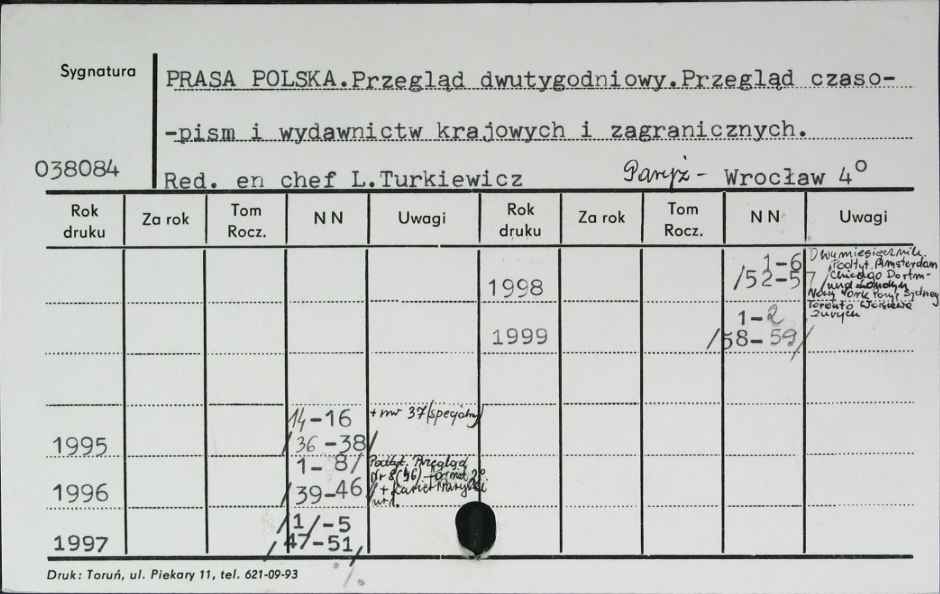 Sygnatura
PRASA POLSKA.Przegląd dwutygodniowy.Przegląd czaso-
-pism i wydawnictw krajowych i zagranicznych.
038084
Red. en chef L.Turkiewicz Paryż- Wrocław 4°
Rok druku Za rok Tom Rocz. N N Uwagi Rok druku Za rok Tom Rocz. N N Uwagi
1998 1-6 /52-57/ Dwumiesięcznik,
Podtyt. Amsterdam
Chicago Dortm-
und Londyn
New York Paryż Sydney
Toronto Warszawa
Zurych
1999 1-2 /58-59/
1995 14-16 /36-38/ + nr 37/specjalny/
1996 1-8/ /39-46/ Podtyt. Przegląd
Nr 8(46) format 2°
1997 /1/-5 /47-51/
Druk: Toruń, ul. Piekary 11, tel. 621-09-93